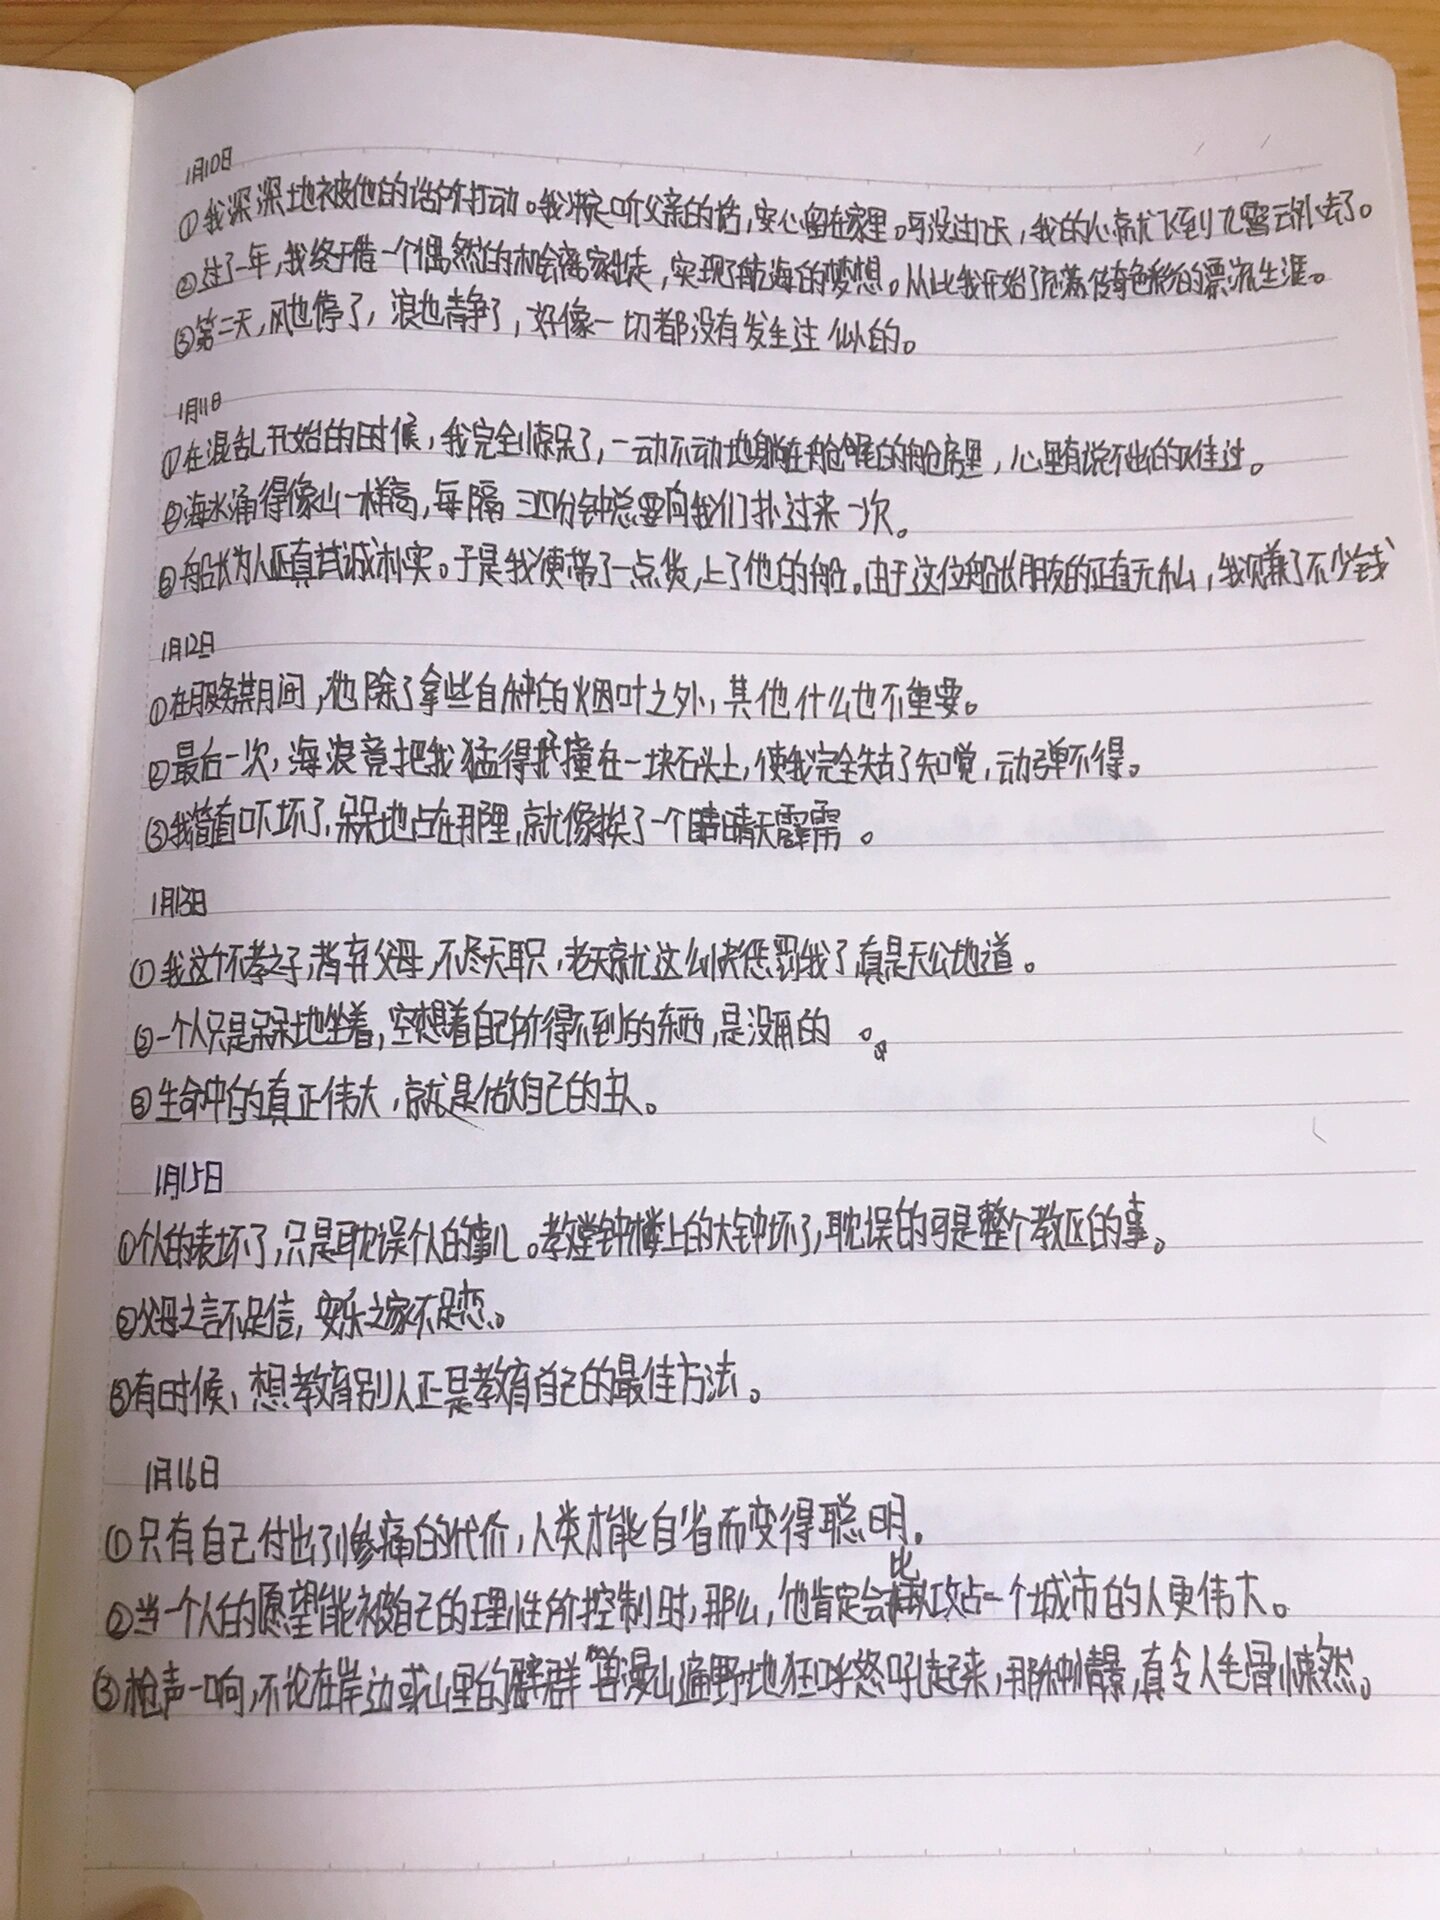 1月10日
①我深深地被他的话所打动。我决定听父亲的话，安心留在家里。可没过几天，我的心就飞到九霄云外去了。
②过了一年，我终于借一个偶然的机会离家出走，实现了航海的梦想。从此我开始了充满传奇色彩的漂流生涯。
③第二天，风也停了，浪也静了，好像一切都没有发生过似的。
1月11日
①在混乱开始的时候，我完全惊呆了，一动不动地躺在船尾的船房里，心里有说不出的难过。
②海水涌得像山一样高，每隔三四分钟总要向我们扑过来一次。
③船长为人正真诚朴实。于是我便带了一点货，上了他的船。由于这位船长朋友的正直无私，我赚了不少钱
1月12日
①在服务期间，他除了拿些自种的烟叶之外，其他什么也不重要。
②最后一次，海浪竟把我猛得撞在一块石头上，使我完全失去了知觉，动弹不得。
③我简直吓坏了，呆呆地占在那里，就像挨了一个晴天霹雳。
1月13日
①我这个不孝之子，背弃父母，不尽天职，老天就这么快惩罚我了，真是天公地道。
②一个人只是呆呆地坐着，空想着自己所得不到的东西，是没用的。
③生命中的真正伟大，就是做自己的主人。
1月15日
①个人的表坏了，只是耽误个人的事儿。教堂钟楼上的大钟坏了，耽误的可是整个教区的事。
②父母之言不足信，安乐之家不足恋。
③有时候，想教育别人正是教育自己的最佳方法。
1月16日
①只有自己付出了惨痛的代价，人类才能自省而变得聪明。
②当一个人的愿望能被自己的理性所控制时，那么，他肯定会比攻占一个城市的人更伟大。
③枪声一响，不论在岸边或山里的群兽漫山遍野地狂呼怒吼起来，那种情景，真令人毛骨悚然。